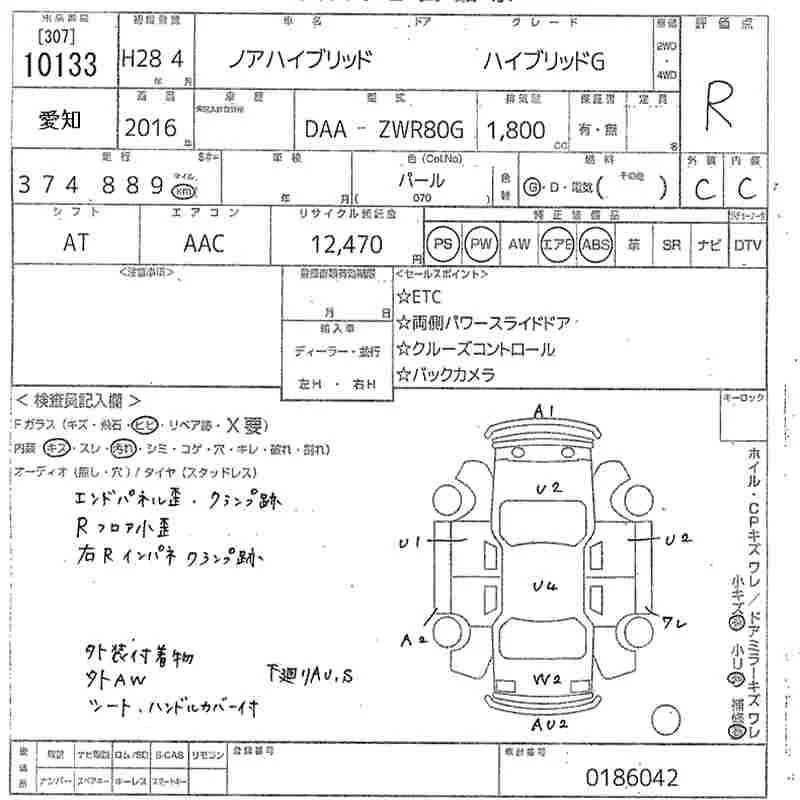 初度登録 車名 ドア グレード 評価点
[307]
10133 H28 4 ノアハイブリッド ハイブリッドG 2WD・4WD R
年 月
車歴 型式 排気量 保証書 定員
愛知 2016年 DAA - ZWR80G 1,800cc 有・無 名
走行 車検 色(Col.No) 燃料 外装 内装
374889 マイル km 年 月 パール (070) 色替 G・D・電気(その他) C C
シフト エアコン リサイクル預託金 純正装備品
AT AAC 12,470円 PS PW AW エアB ABS 革 SR ナビ DTV
<注意事項> <セールスポイント>
月 日
輸入車
ディーラー・並行
左H・右H
☆ETC
☆両側パワースライドドア
☆クルーズコントロール
☆バックカメラ
<検査員記入欄> キーロック
Fガラス(キズ・飛石・ヒビ・リペア跡・X要)
内装(キズ・スレ・汚れ・シミ・コゲ・穴・キレ・破れ・割れ)
オーディオ(無し・穴)/タイヤ(スタッドレス)
エンドパネル歪・クランプ跡
Rフロア小歪
右Rインパネクランプ跡
外装付着物
外AW
シート、ハンドルカバー付
下廻りAU,S
A1
U2
U1
U2
U4
A2
ワレ
W2
AU2
ホイル・CPキズワレ/ドアミラーキズワレ
小キズ 小U 補修
取説 ナビ取説 ロム/SD B-CAS リモコン 登録番号 車台番号
ナンバー スペアキー キーレス スマートキー
0186042